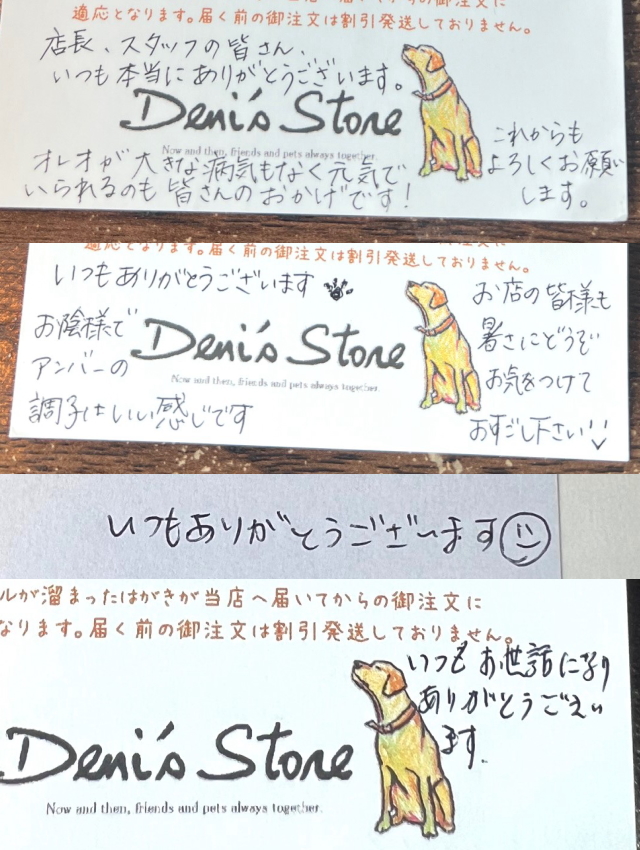 適応となります。届く前の御注文は割引発送しておりません。
店長、スタッフの皆さん、
いつも本当にありがとうございます。
Deni's Store
Now and then, friends and pets always together.
オレオが大きな病気もなく元気で
いられるのも皆さんのおかげです!
これからも
よろしくお願い
します。
適応となります。届く前の御注文は割引発送しておりません。
いつもありがとうございます
お陰様で
アンバーの
調子はいい感じです
Deni's Store
Now and then, friends and pets always together.
お店の皆様も
暑さにどうぞ
お気をつけて
おすごし下さい!!
いつもありがとうございます
ルが溜まったはがきが当店へ届いてからの御注文に
なります。届く前の御注文は割引発送しておりません。
いつもお世話になり
ありがとうごさい
ます.
Deni's Store
Now and then, friends and pets always together.